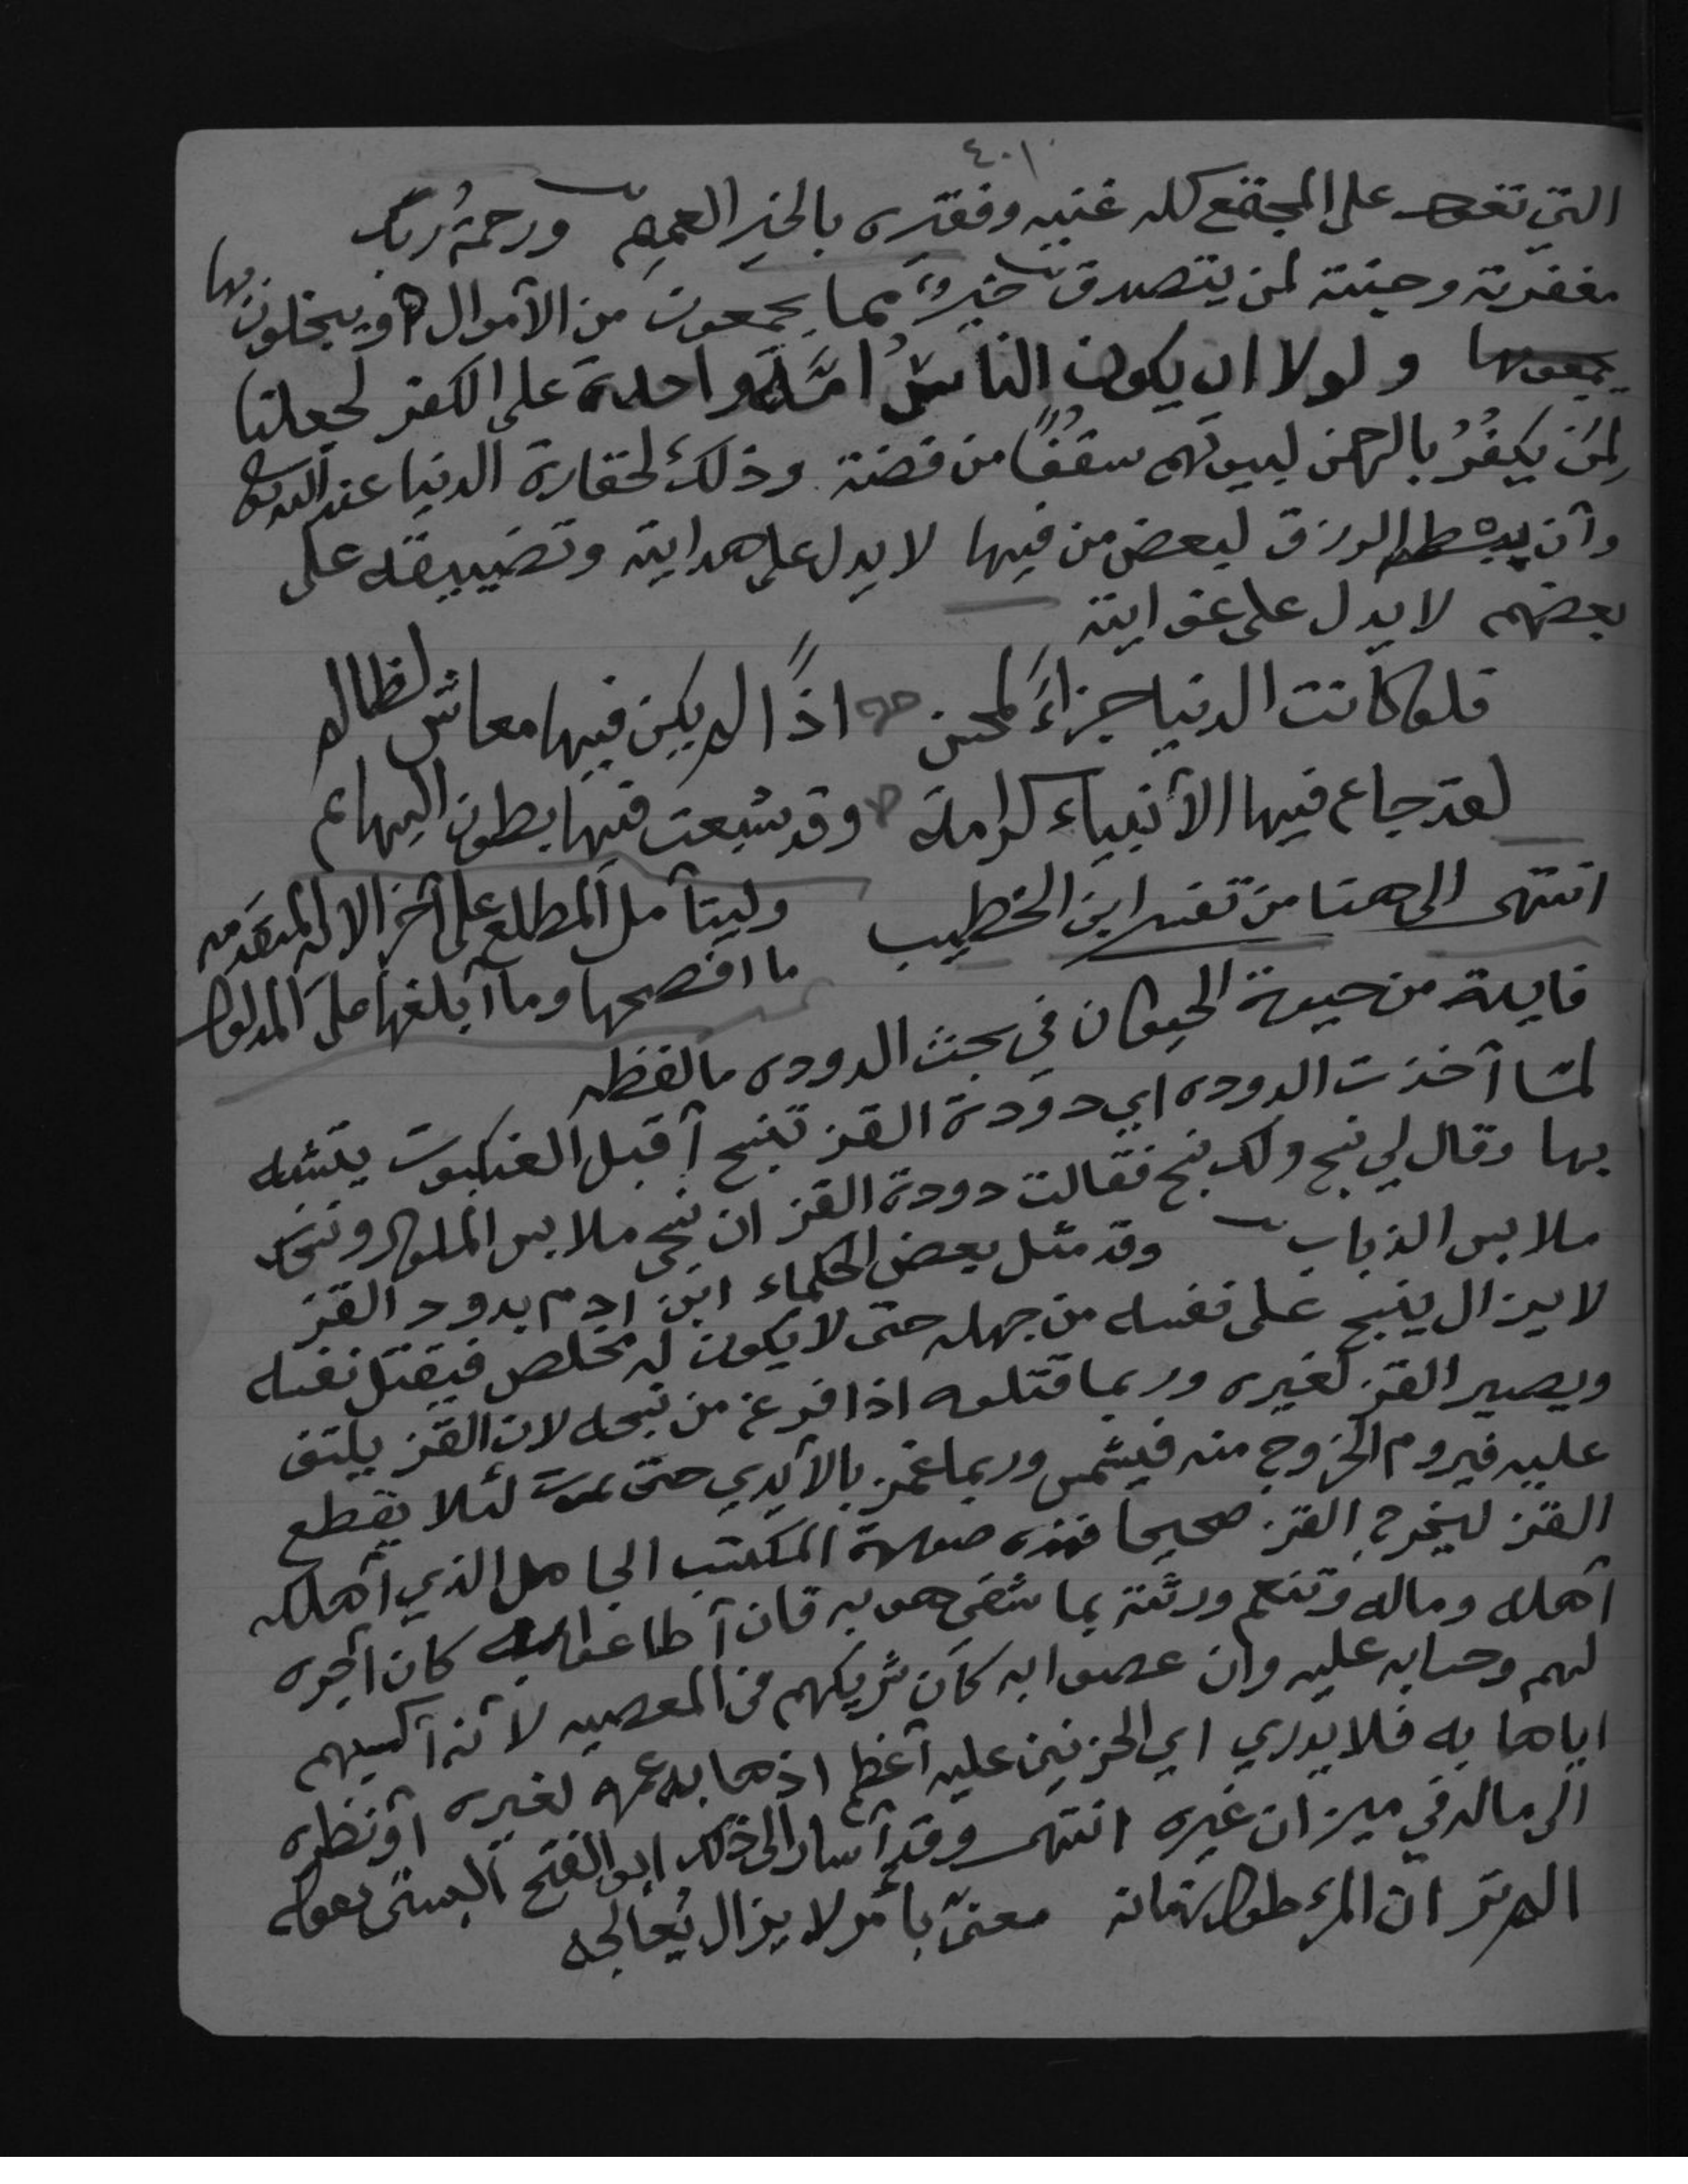 ٤٠١
التي تعود على المجتمع كله غنيه وفقيره بالخير العميم ورحمةُ ربك
مغفرته وجنته لمن يتصدق خيرٌ مما يجمعون من الأموال ويبخلون بها
يجمعونها ولولا ان يكون الناسُ امَّةً واحدة على الكفر لجعلنا
لِمَن يكفُرُ بالرحمن لبيوتهم سقفًا من فضة وذلك لحقارة الدنيا عند الله
وأن بسط الرزق لبعض من فيها لا يدل على هدايته وتضييقه على
بعضهم لا يدل على غوايته
فلو كانت الدنيا جزاءً لمحسن اذًا لم يكن فيها معاش لظالم
لقد جاع فيها الأنبياء كرامة وقد شبعت فيها بطون البهائم
انتهى الى هنا من تفسير ابن الخطيب وليتأمل المطلع على آخر الاية المتقدمه
ما افصحها وما أبلغها على المدلول
فايدة من حيوة الحيوان في بحث الدوده ما لفظه
لمّا أخذت الدوده اي دودة القز تنسج أقبل العنكبوت يتشبه
بها وقال لي نسج ولك نسج فقالت دودة القز ان نسجي ملابس الملوك ونسجك
ملابس الذباب وقد مثل بعض الحكماء ابن ادم بدود القز
لا يزال ينسج على نفسه من جهله حتى لا يكون له مخلص فيقتل نفسه
ويصير القز لغيره وربما قتلوه اذا فرغ من نسجه لان القز يلتف
عليه فيروم الخروج منه فيشمس وربما غمز بالأيدي حتى يموت لئلا يقطع
القز ليخرج القز صحيحا فهذه صورة المكتسب الجاهل الذي أهلكه
أهله وماله وتنعم ورثته بما شقي هو به فان أطاعوا الله كان أجره
لهم وحسابه عليه وان عصوا به كان شريكهم في المعصيه لأنه أكسبهم
اياها به فلا يدري اي الحزنين عليه أعظم اذهابه عمره لغيره أو نظره
الى ماله في ميزان غيره انتهى وقد أشار الى ذلك ابو الفتح البستي بقوله
الم تر ان المرء طول زمانه معنىّ بأمر لا يزال يُعالجه